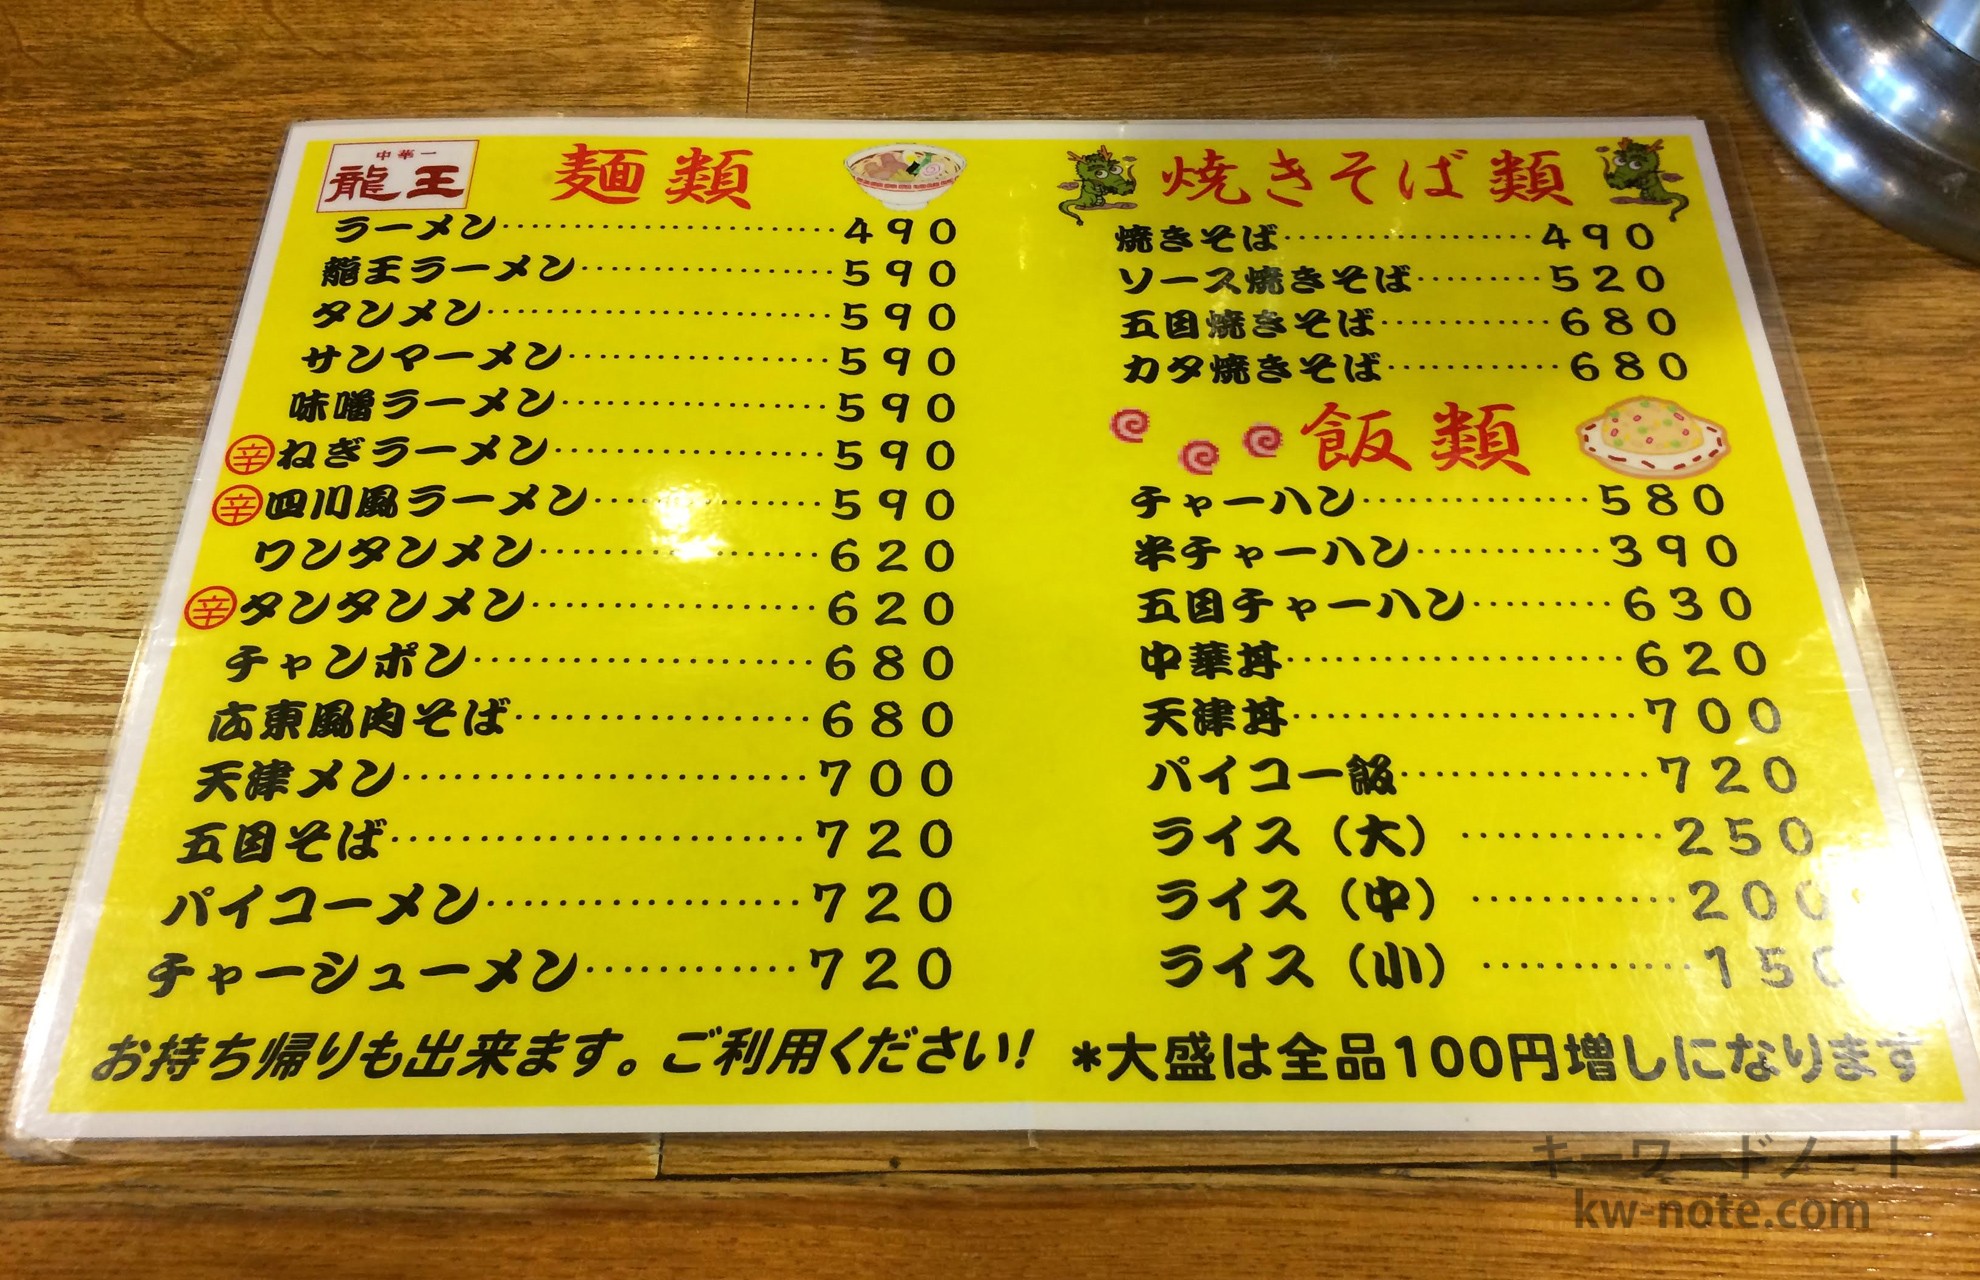 中華一
龍王
麺類
ラーメン…………………………490
龍王ラーメン…………………590
タンメン………………………590
サンマーメン…………………590
味噌ラーメン…………………590
辛ねぎラーメン………………590
辛四川風ラーメン……………590
ワンタンメン…………………620
辛タンタンメン………………620
チャンポン……………………680
広東風肉そば…………………680
天津メン………………………700
五目そば………………………720
パイコーメン…………………720
チャーシューメン……………720
お持ち帰りも出来ます。ご利用ください!
焼きそば類
焼きそば………………………490
ソース焼きそば………520
五目焼きそば…………680
カタ焼きそば…………680
飯類
チャーハン……………580
半チャーハン…………390
五目チャーハン………630
中華丼…………………620
天津丼…………………700
パイコー飯……………720
ライス(大)…………250
ライス(中)…………200
ライス(小)…………150
*大盛は全品100円増しになります
キーワードノート
kw-note.com